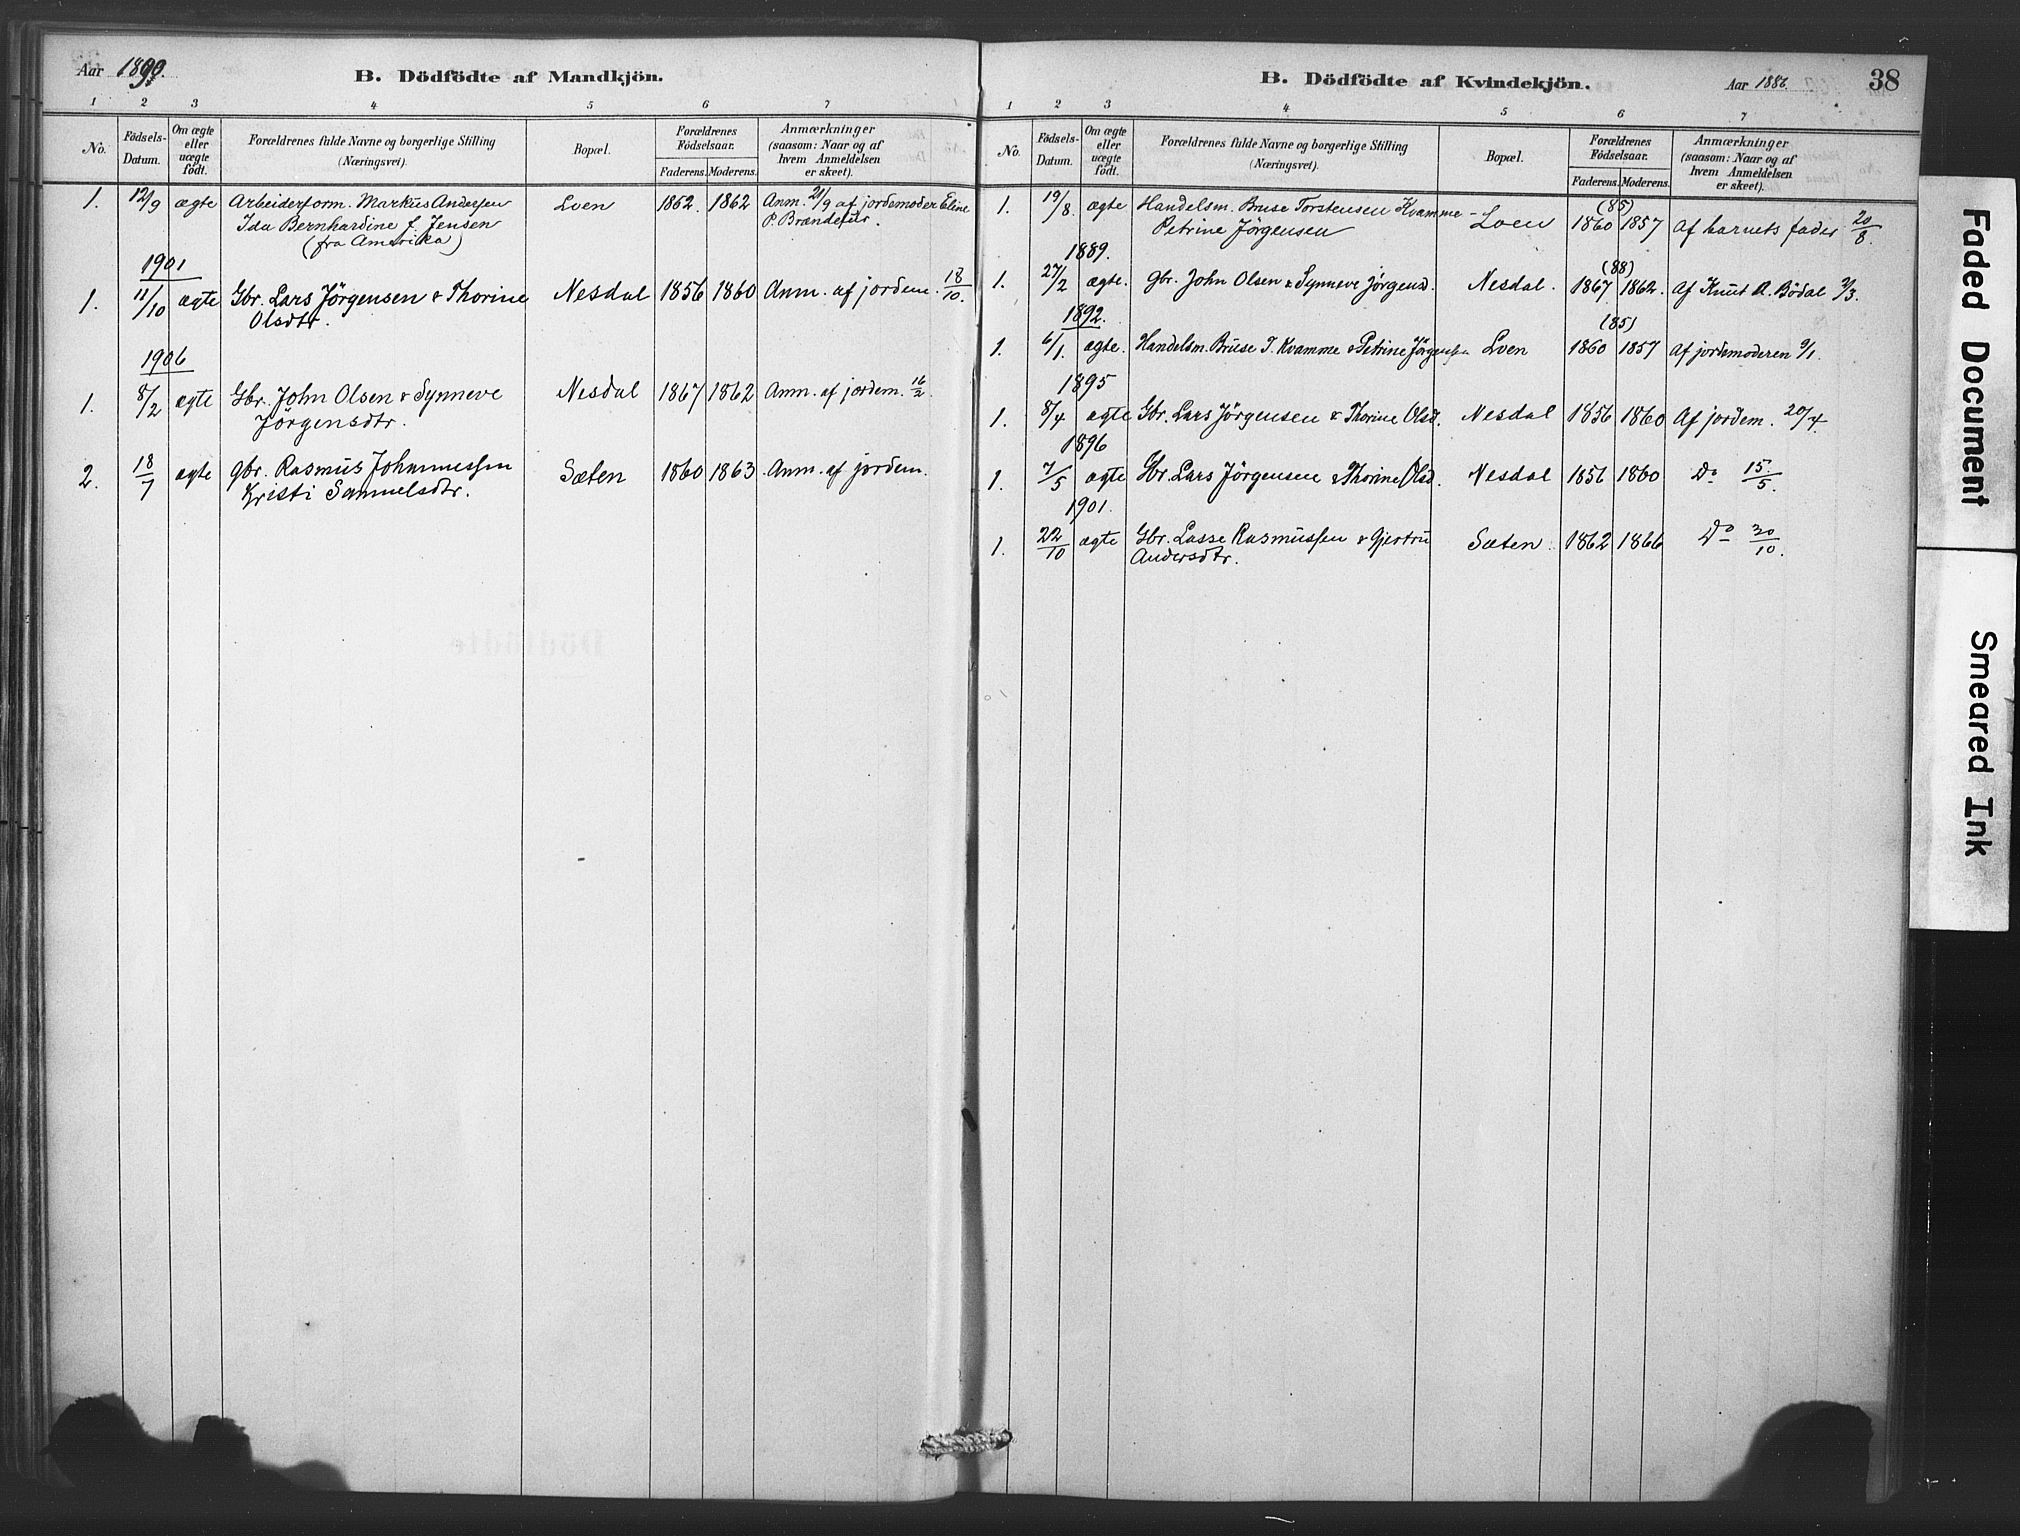 Aar 1890.
B. Dödfödte af Mandkjön.
1 2 3 4 5 6 7
No. Födsels-Datum. Om ægte eller uægte födt. Forældrenes fulde Navne og borgerlige Stilling (Næringsvei). Bopæl. Forældrenes Födselsaar. Faderens. Moderens. Anmærkninger (saasom: Naar og af hvem Anmeldelsen er skeet).
1. 12/9 ægte Arbeiderform. Markus Andersen Loen 1862. 1862 Anm. 21/9 af jordemoder Eline
Ida Bernhardine f. Jensen P. Brændefur.
(fra Amerika)
1901
1. 11/10 ægte Gbr. Lars Jörgensen & Thorine Nesdal 1856 1860 Anm. af jordem. 18/10.
Olsdtr.
1906
1. 8/2 ægte Gbr. John Olsen & Synneve Nesdal 1867 1862 Anm. af jordem. 16/2.
Jörgensdtr.
2. 18/7 ægte gbr. Rasmus Johannessen Sæten 1860 1863 Anm. af jordem.
Kristi Samuelsdtr.
B. Dödfödte af Kvindekjön.
Aar 1886.
38
1 2 3 4 5 6 7
No. Födsels-Datum. Om ægte eller uægte födt. Forældrenes fulde Navne og borgerlige Stilling (Næringsvei). Bopæl. Forældrenes Födselsaar. Faderens. Moderens. Anmærkninger (saasom: Naar og af hvem Anmeldelsen er skeet).
(85)
1. 19/8. ægte Handelsm. Bruse Torstensen Kvamme - Loen 1860 1857 Af barnets fader 20/8.
Petrine Jörgensen
1889.
(88)
1. 27/2 ægte. Gbr. John Olsen & Synneve Jörgensd. Nesdal. 1867 1862. Af Knut A. Bödal 3/3.
1892.
(85)
1. 6/1. ægte. Handelsm. Bruse T. Kvamme & Petrine Jörgensen Loen 1860 1857 Af jordemoderen 9/1.
1895
1. 8/4 ægte Gbr. Lars Jörgensen & Thorine Olsd. Nesdal 1856 1860 Af jordem. 20/4.
1896
1. 7/5 ægte Gbr. Lars Jörgensen & Thorine Olsd. Nesdal 1856 1860 Do 15/5.
1901.
1. 22/10 ægte Gbr. Lasse Rasmussen & Gjertru Sæten. 1862 1866 Do 30/10.
Andersdtr.
Faded Document
Smeared Ink